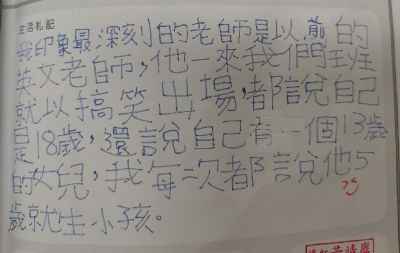 生活札記
我印象最深刻的老師是以前的
英文老師，他一來我們班
就以搞笑出場，都說自己
是18歲，還說自己有一個13歲
的女兒，我每次都說他5
歲就生小孩。